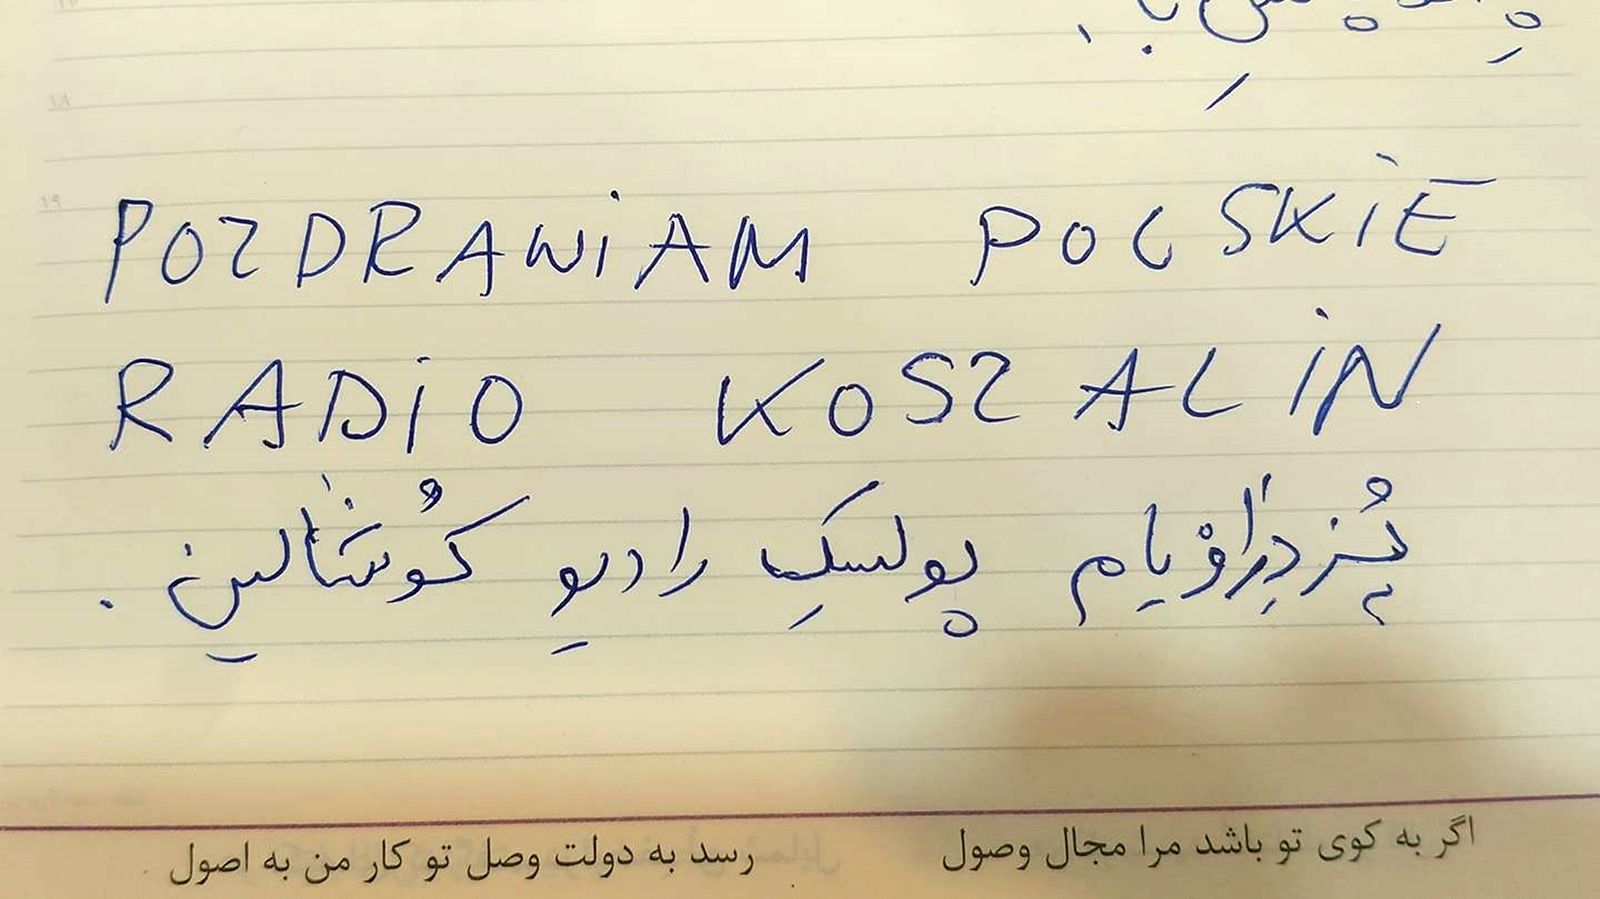 ۱۸
۱۹
POZDRAWiAM POLSKiE
RADiO KOSZALiN
پُزدِراوْیام پولسکِ رادیو کُوشالین.
اگر به کوی تو باشد مرا مجال وصول رسد به دولت وصل تو کار من به اصول